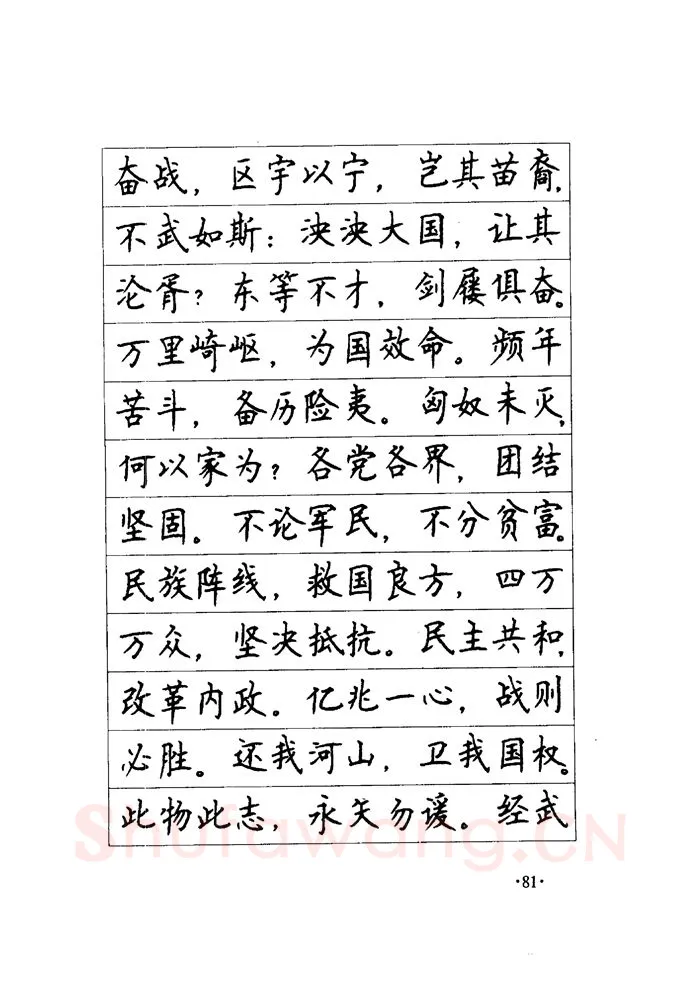 奋战，区宇以宁，岂其苗裔，
不武如斯：泱泱大国，让其
沦胥？东等不才，剑屦俱奋。
万里崎岖，为国效命。频年
苦斗，备历险夷。匈奴未灭，
何以家为？各党各界，团结
坚固。不论军民，不分贫富。
民族阵线，救国良方，四万
万众，坚决抵抗。民主共和，
改革内政。亿兆一心，战则
必胜。还我河山，卫我国权。
此物此志，永矢勿谖。经武
Shufawang.CN
·81·